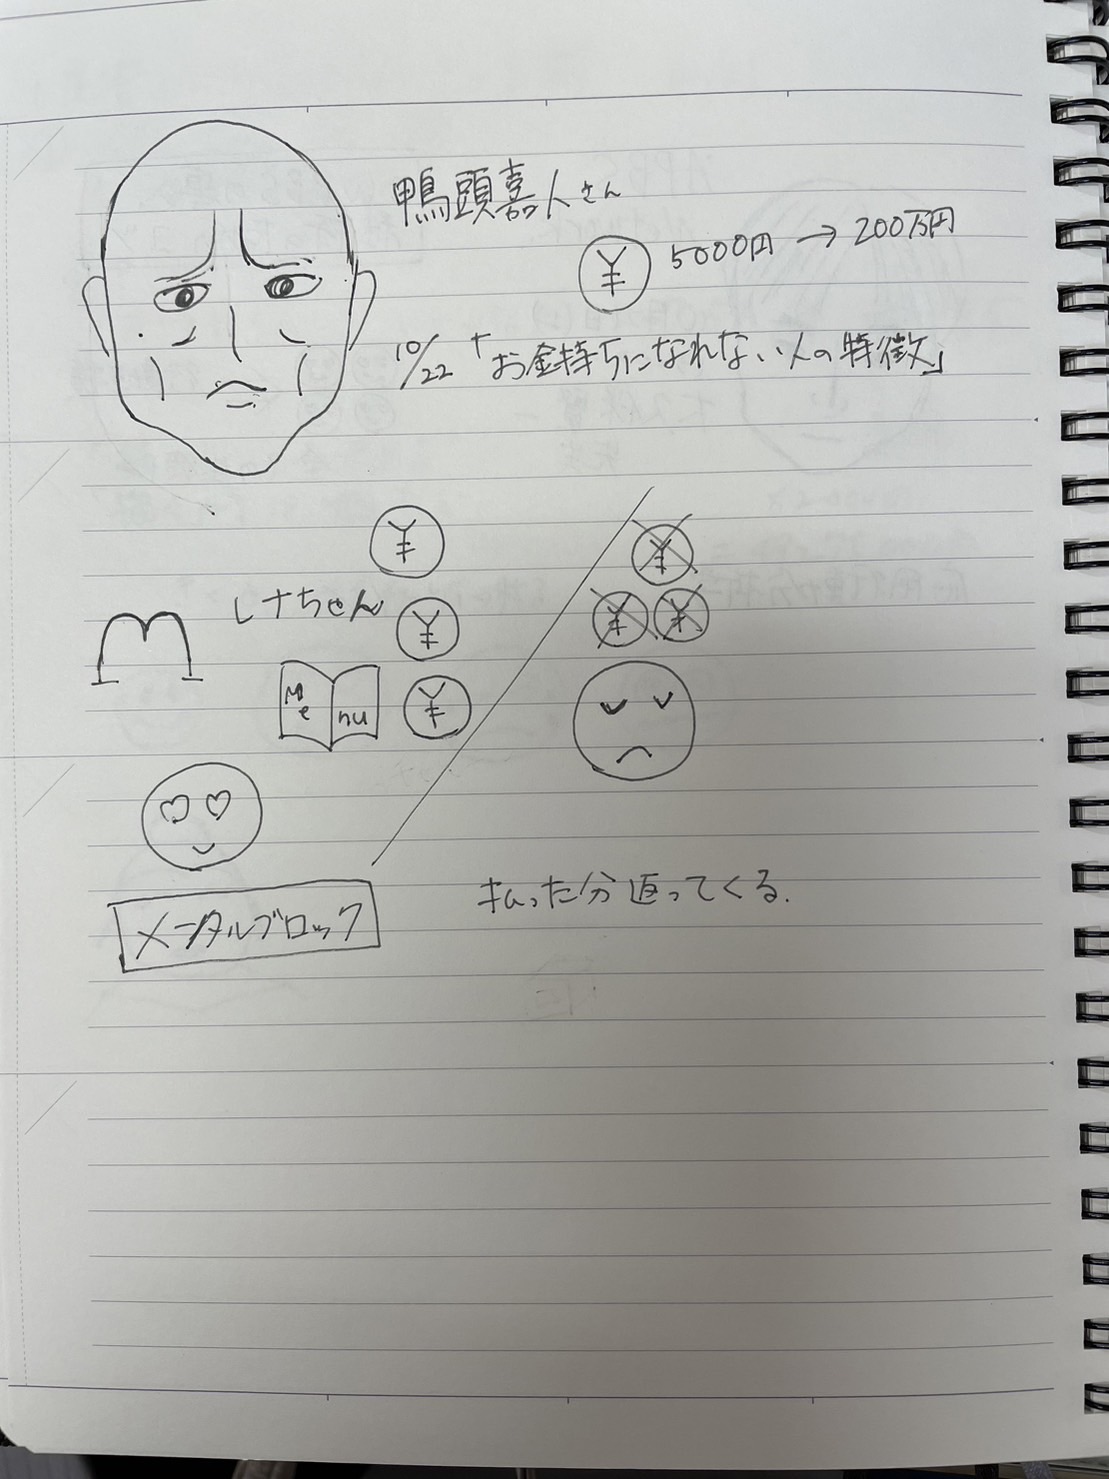 鴨頭嘉人さん
¥ 5000円 → 200万円
10/22 「お金持ちになれない人の特徴」
¥
¥
レナちゃん
¥
¥ ¥
Me nu
¥
メンタルブロック
払った分返ってくる.